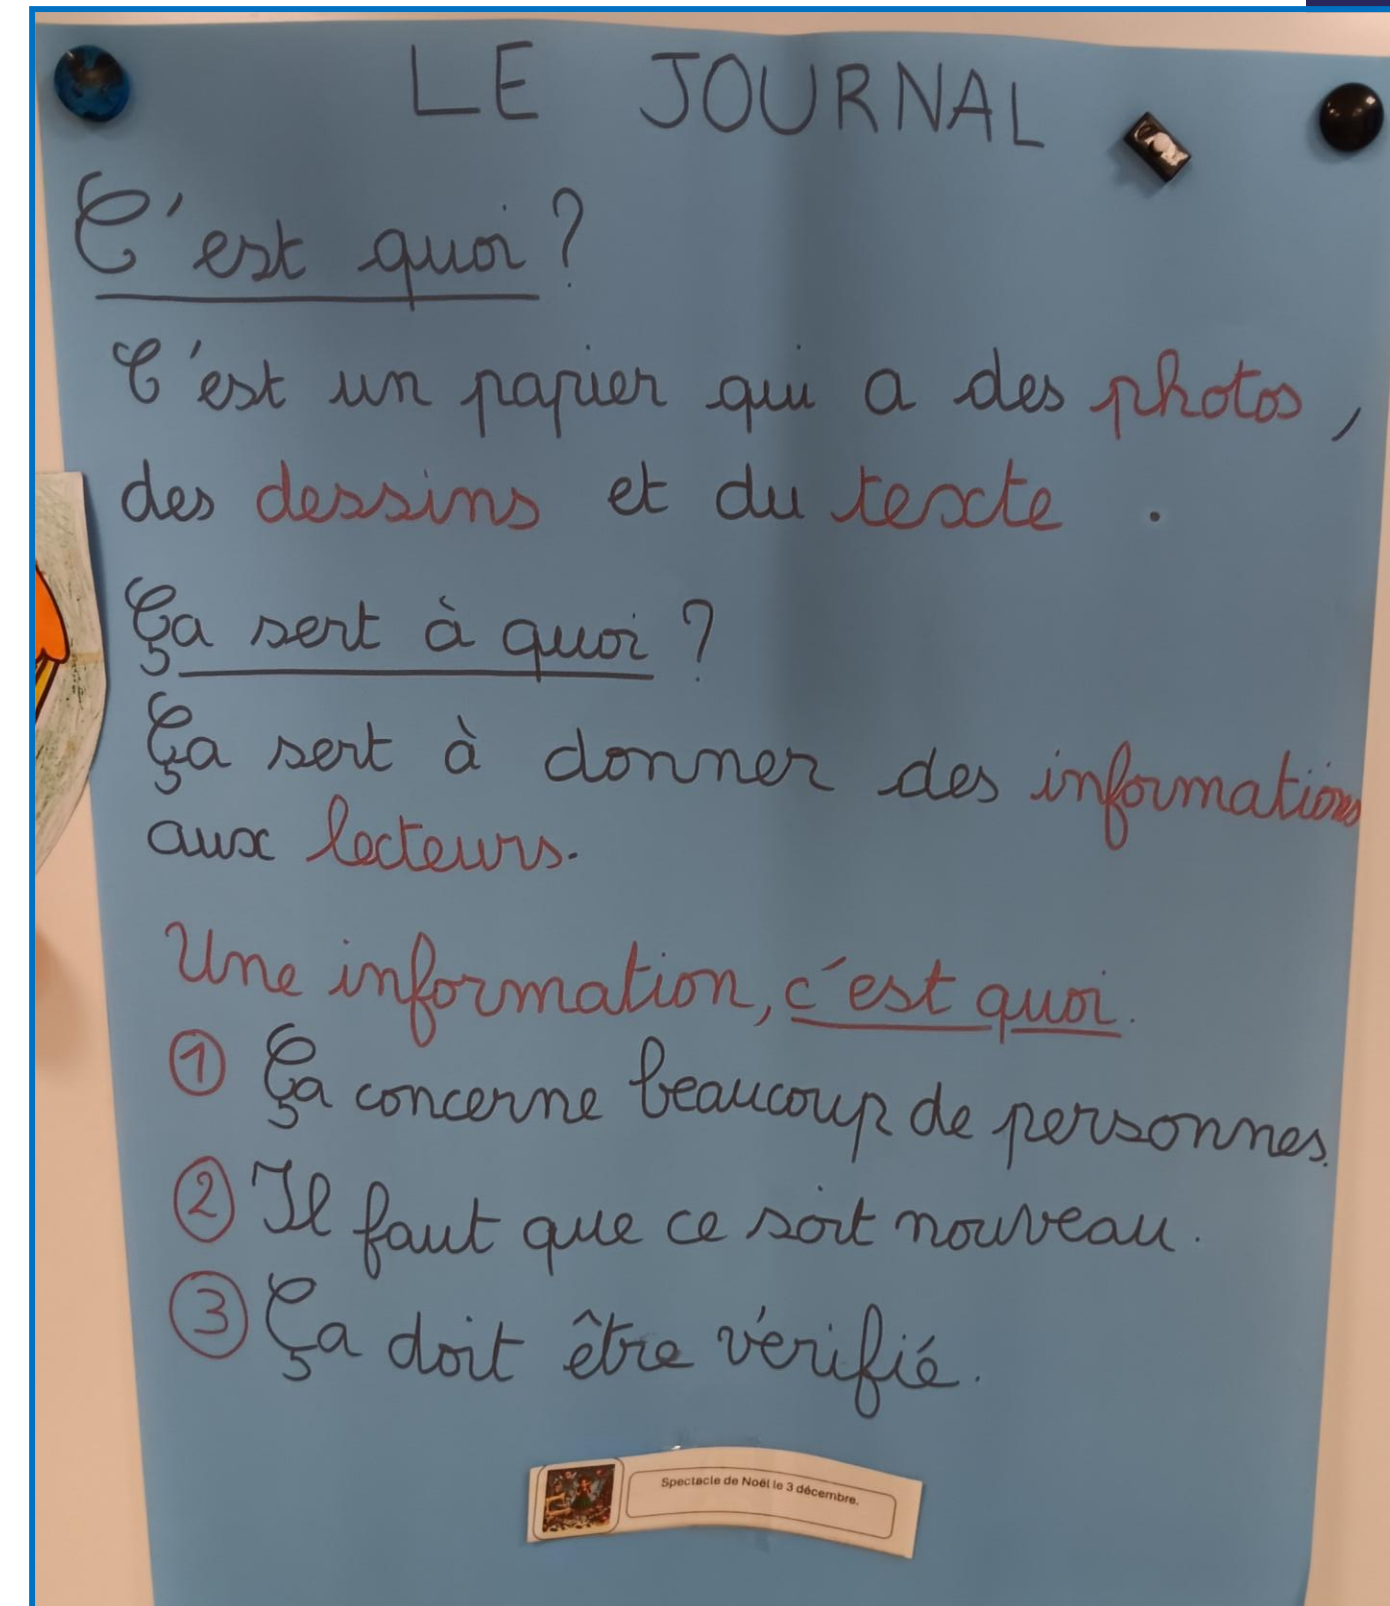 LE JOURNAL
C'est quoi ?
C'est un papier qui a des photos,
des dessins et du texte.
Ça sert à quoi ?
Ça sert à donner des informations
aux lecteurs.
Une information, c'est quoi.
① Ça concerne beaucoup de personnes.
② Il faut que ce soit nouveau.
③ Ça doit être vérifié.
Spectacle de Noël le 3 décembre.